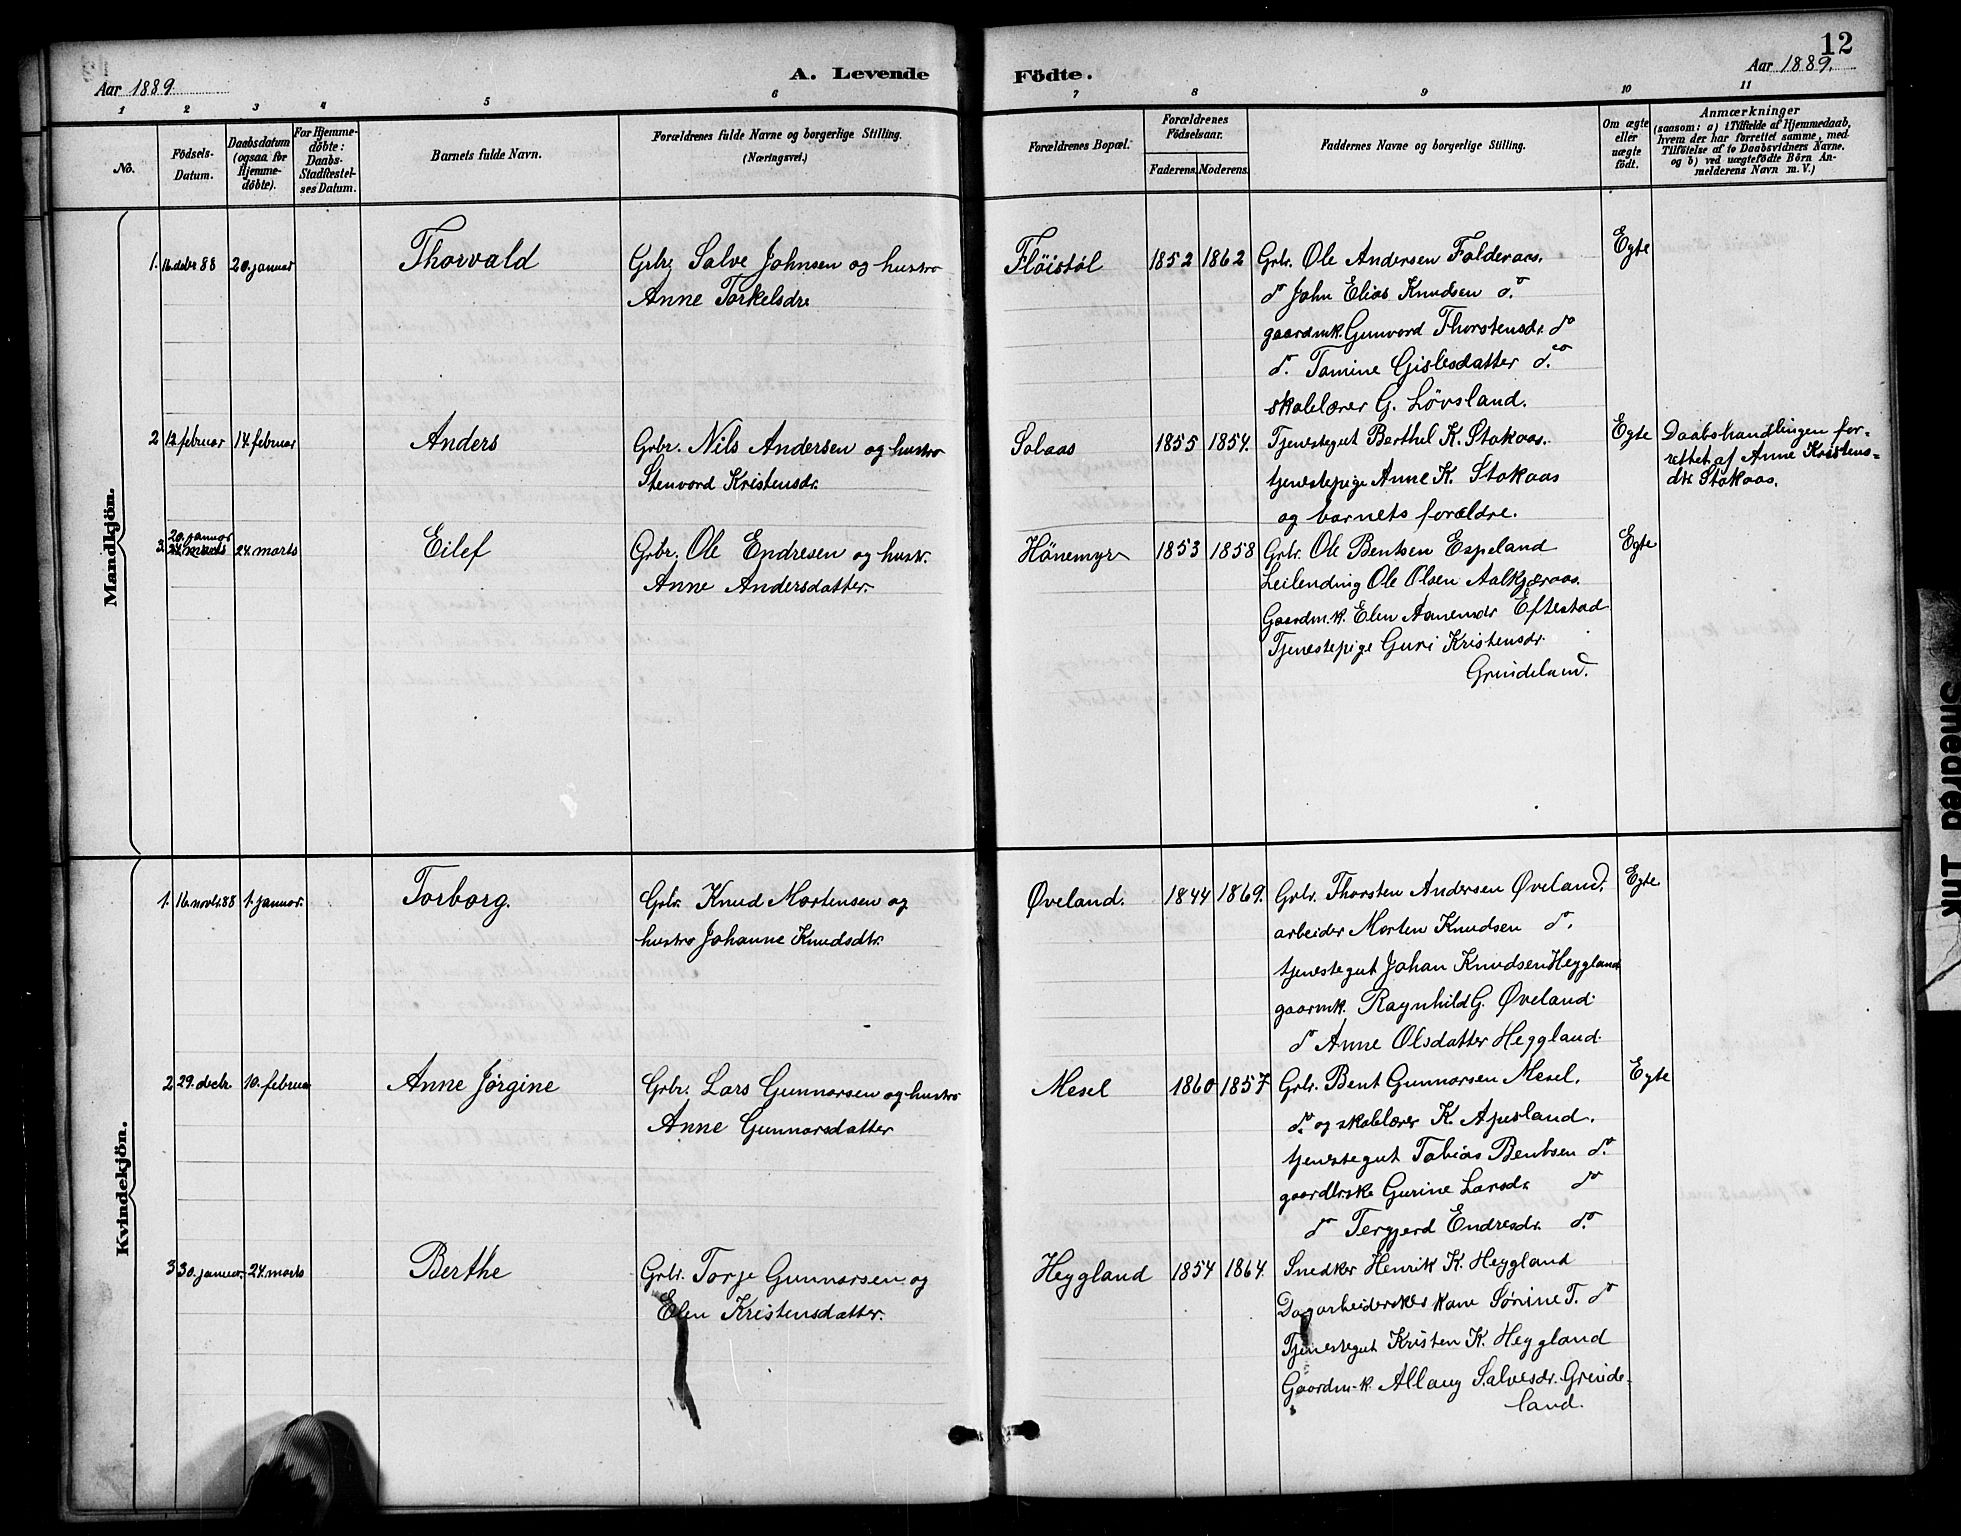 12
Aar 1889.
A. Levende
Födte.
Aar 1889.
1 2 3 4 5 6 7 8 9 10 11
No.
Födsels-
Datum.
Daabsdatum
(ogsaa for
Hjemme-
döbte).
For Hjemme-
döbte:
Daabs-
Stadfæstel-
ses Datum.
Barnets fulde Navn.
Forældrenes fulde Navne og borgerlige Stilling.
(Næringsvei.)
Forældrenes Bopæl.
Forældrenes
Födselsaar.
Faderens. Moderens.
Faddernes Navne og borgerlige Stilling.
Om ægte
eller
uægte
födt.
Anmærkninger
(saasom: a) i Tilfælde af Hjemmedaab,
hvem der har forrettet samme, med
Tilföielse af to Daabsvidners Navne.
og b) ved uægtefödte Börn An-
melderens Navn m. V.)
Mandkjön.
1. 16. debr 88 20. januar Thorvald Grbr. Salve Johnsen og hustro
Anne Torkelsdr.
Fløistøl 1852 1862 Grbr. Ole Andersen Falderaas.
do John Elias Knudsen do.
gaardmk. Gunvord Thorstensdr. do
do. Tomine Gislesdatter do.
skolelærer G. Løvsland.
Egte
2 12 februar 14. februar Anders Grbr. Nils Andersen og hustro
Stenvord Kristensdr.
Solaas 1855 1854. Tjenestegut Berthel K. Stokaas.
tjenestepige Anne K. Stokaas
og barnets forældre.
Egte Daabshandlingen for-
rettet af Anne Kristens-
dtr. Stokaas.
20. januar
3. 24. marts 24. marts Eilef Grbr. Ole Endresen og hustr.
Anne Andersdatter.
Hönemyr 1853 1858 Grbr. Ole Bentsen Espeland
Leilending Ole Olsen Aalkjæraas.
Gaardm.k. Elen Aanensdr Eftestad
Tjenestepige Guri Kristensdr.
Grindeland.
Egte
Kvindekjön.
1. 16. novbr. 88 1. januar. Torborg. Grbr. Knud Mortensen og
hustro Johanne Knudsdtr.
Øveland. 1844 1869. Grbr. Thorsten Andersen Øveland.
arbeider Morten Knudsen do.
tjenestegut Johan Knudsen Heggland
gaarmk. Ragnhild G. Øveland.
do Anne Olsdatter Heggland.
Egte
2 29. decbr. 10. februar Anne Jørgine Grbr. Lars Gunnarsen og hustro
Anne Gunnarsdatter
Mesel 1860 1857 Grbr. Bent Gunnarsen Mesel.
do. og skolelærer K. Apesland.
tjenestegut Tobias Bentsen do.
gaardbrske Gurine Larsdr. do
do Tergjerd Endresdr. do.
Egte
3 30. januar. 24. marts Berthe Grbr. Torje Gunnarsen og
Elen Kristensdatter.
Heggland 1854 1864. Snedker Henrik K. Heggland
Dagarbeiderskes kone Sørine T. do
Tjenestegut Kristen K. Heggland
Gaardm-k. Allaug Salvesdr. Grinde-
land.
Smeared Ink